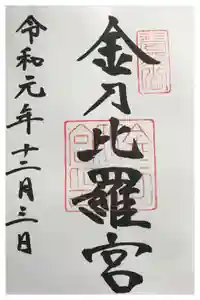 金刀比羅宮
令和元年十二月三日